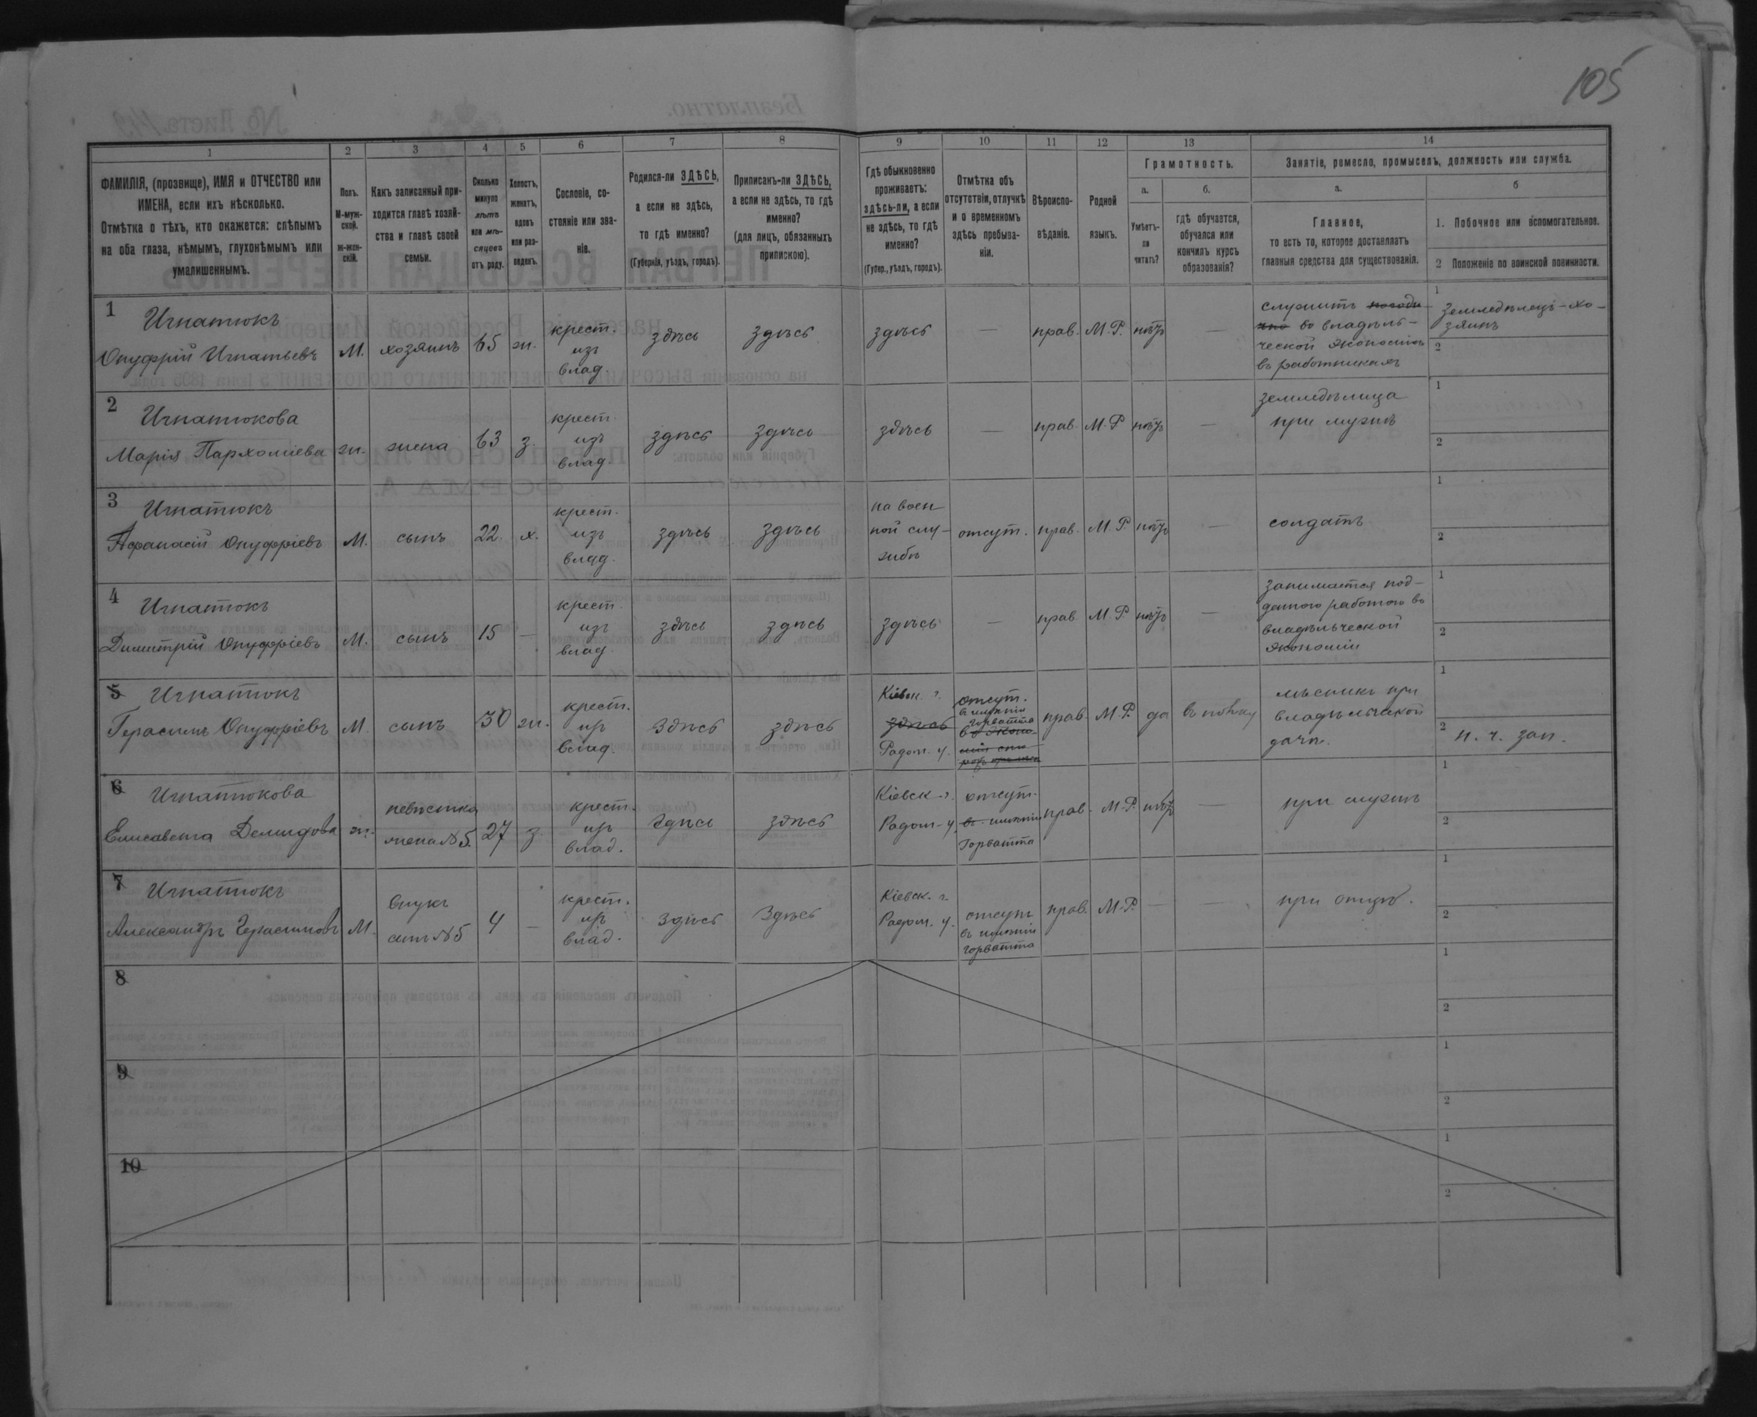 105
1
2
3
4
5
6
7
8
9
10
11
12
13
14
ФАМИЛІЯ, (прозвище), ИМЯ и ОТЧЕСТВО или
ИМЕНА, если ихъ нѣсколько.
Отмѣтка о тѣхъ, кто окажется: слѣпымъ
на оба глаза, нѣмымъ, глухонѣмымъ или
умалишеннымъ.
Полъ.
М-муж-
ской.
ж-жен-
скій.
Какъ записанный при-
ходится главѣ хозяй-
ства и главѣ своей
семьи.
Сколько
минуло
лѣтъ
или мѣ-
сяцевъ
отъ роду.
Холостъ,
женатъ,
вдовъ
или раз-
веденъ.
Сословіе, со-
стояніе или зва-
ніе.
Родился-ли ЗДѢСЬ,
а если не здѣсь,
то гдѣ именно?
(Губернія, уѣздъ, городъ).
Приписанъ-ли ЗДѢСЬ,
а если не здѣсь, то гдѣ
именно?
(для лицъ, обязанныхъ
припискою).
Гдѣ обыкновенно
проживаетъ:
здѣсь-ли, а если
не здѣсь, то гдѣ
именно?
(Губер., уѣздъ, городъ).
Отмѣтка объ
отсутствіи, отлучкѣ
и о временномъ
здѣсь пребыва-
ніи.
Вѣроиспо-
вѣданіе.
Родной
языкъ.
Грамотность.
а.
б.
Умѣетъ-
ли
читать?
гдѣ обучается,
обучался или
кончилъ курсъ
образованія?
Занятіе, ремесло, промыселъ, должность или служба.
а.
б
Главное,
то есть то, которое доставляетъ
главныя средства для существованія.
1. Побочное или вспомогательное.
2 Положеніе по воинской повинности.
1
Игнатюкъ
Онуфрій Игнатьевъ
М.
хозяинъ
65
ж.
крест.
изъ
влад.
здѣсь
здѣсь
здѣсь
—
прав.
М.Р.
нѣтъ
—
служитъ
во владѣль-
ческой экономіи
въ работникахъ
1
земледѣлецъ-хо-
зяинъ
2
2
Игнатюкова
Марія Пархоміева
ж.
жена
63
з
крест
изъ
влад
здѣсь
здѣсь
здѣсь
—
прав
М.Р
нѣтъ
—
земледѣлица
при мужѣ
1
2
3
Игнатюкъ
Афанасій Онуфріевъ
М.
сынъ
22.
х.
крест.
изъ
влад.
здѣсь
здѣсь
на воен
ной слу-
жбѣ
отсут.
прав.
М Р
нѣтъ
—
солдатъ
1
2
4
Игнатюкъ
Димитрій Онуфріевъ
М.
сынъ
15
—
крест
изъ
влад
здѣсь
здѣсь
здѣсь
—
прав
М.Р.
нѣтъ
—
занимается под-
деною работою во
владѣльческой
экономіи
1
2
5
Игнатюкъ
Герасимъ Онуфріевъ
М.
сынъ
30
ж.
крест.
изъ
влад.
здѣсь
здѣсь
Кіевск. г.
здѣсь
Радом. у.
отсут.
в имѣніи
Горватта
прав.
М.Р.
да
лѣсникъ при
владѣльческой
дачѣ.
1
2
н. ч. зап.
6
Игнатюкова
Елисавета Демидова
ж.
невѣстка
жена №5.
27
з
крест.
изъ
влад.
здѣсь
здѣсь
Кіевск г.
Радом. у.
отсут.
въ имѣніи
Горватта
прав.
М.Р.
нѣтъ
—
при мужѣ
1
2
7
Игнатюкъ
Александръ Герасимовъ
М.
внукъ
сынъ №5
4
—
крест.
изъ
влад.
здѣсь
здѣсь
Кіевск. г.
Радом. у.
отсут
въ имѣніи
Горватта
прав.
М.Р.
—
—
при отцѣ.
1
2
8
1
2
9
1
2
10
1
2